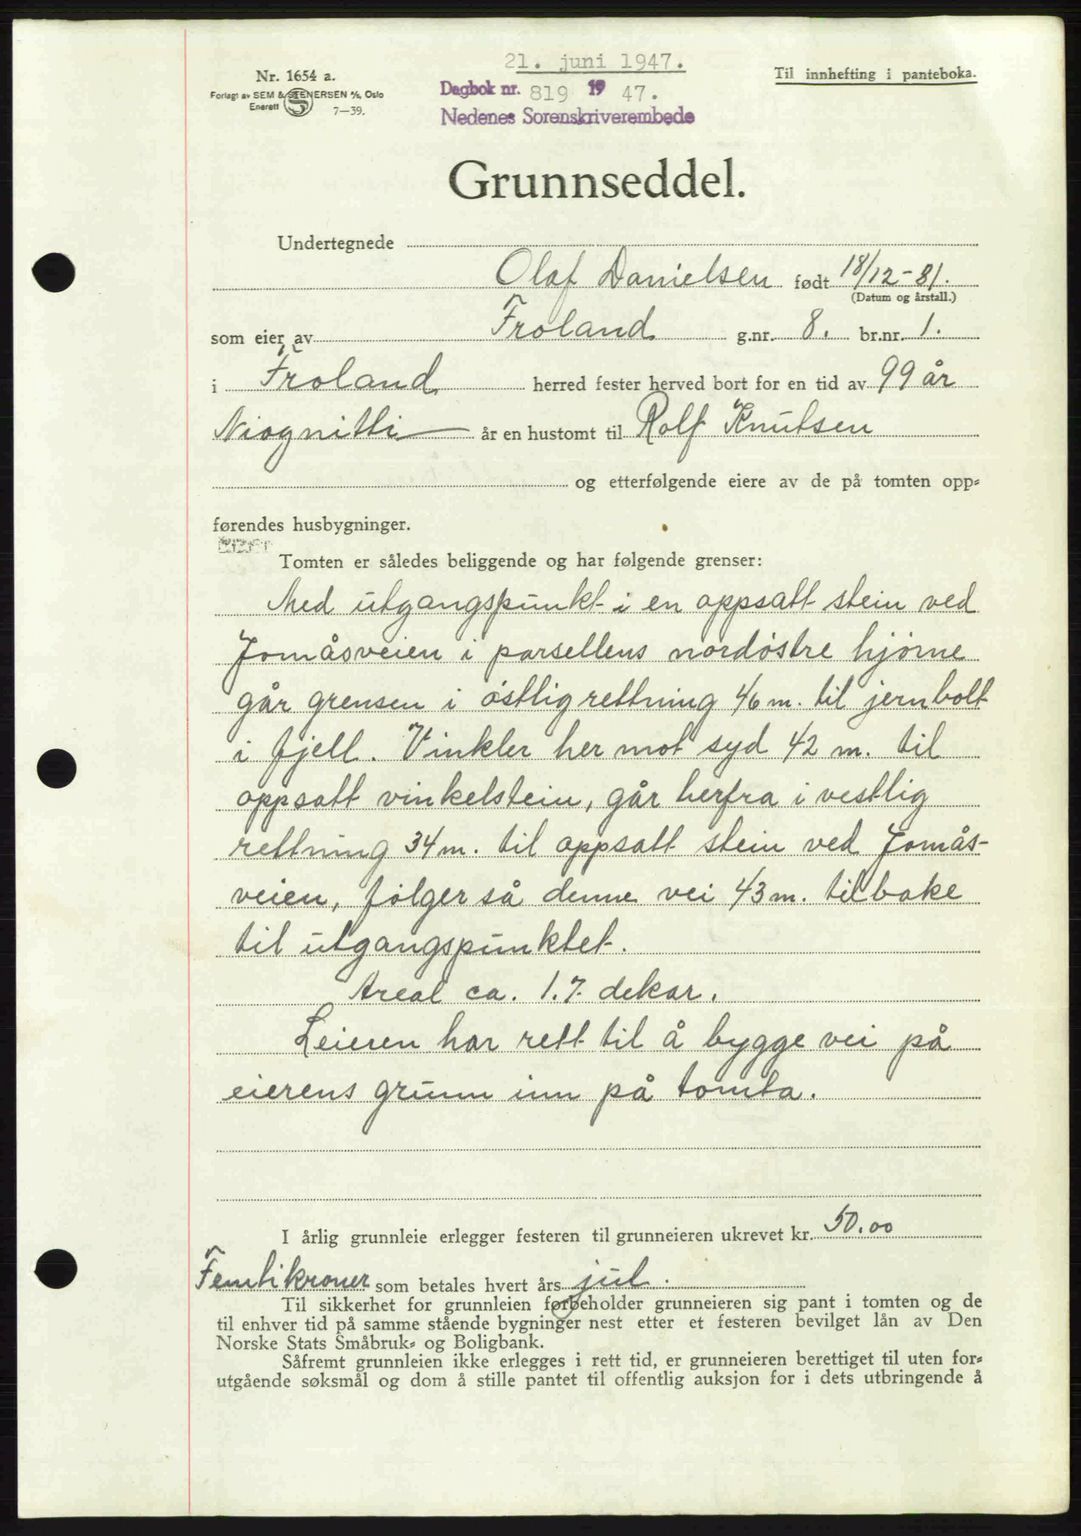 21. juni 1947.
Nr. 1654 a.
Til innhefting i panteboka.
Forlagt av SEM & STENERSEN A/S, Oslo
Enerett S 7—39.
Dagbok nr. 819 19 47.
Nedenes Sorenskriverembede
Grunnseddel.
Undertegnede
Olaf Danielsen født 18/12-81.
(Datum og årstall.)
som eier av Froland g.nr. 8. br.nr. 1.
i Froland herred fester herved bort for en tid av 99 år
Niognitti år en hustomt til Rolf Knutsen
og etterfølgende eiere av de på tomten opp-
førendes husbygninger.
Tomten er således beliggende og har følgende grenser:
Med utgangspunkt i en oppsatt stein ved
Jomåsveien i parsellens nordøstre hjørne
går grensen i østlig rettning 46 m. til jernbolt
i fjell. Vinkler her mot syd 42 m. til
oppsatt vinkelstein, går herfra i vestlig
rettning 34 m. til oppsatt stein ved Jomås-
veien, følger så denne vei 43 m. tilbake
til utgangspunktet.
Areal ca. 1.7. dekar.
Leieren har rett til å bygge vei på
eierens grunn inn på tomta.
I årlig grunnleie erlegger festeren til grunneieren ukrevet kr. 50.00
Femti kroner som betales hvert års jul.
Til sikkerhet for grunnleien forbeholder grunneieren sig pant i tomten og de
til enhver tid på samme stående bygninger nest etter et festeren bevilget lån av Den
Norske Stats Småbruk- og Boligbank.
Såfremt grunnleien ikke erlegges i rett tid, er grunneieren berettiget til uten for-
utgående søksmål og dom å stille pantet til offentlig auksjon for i dets utbringende å